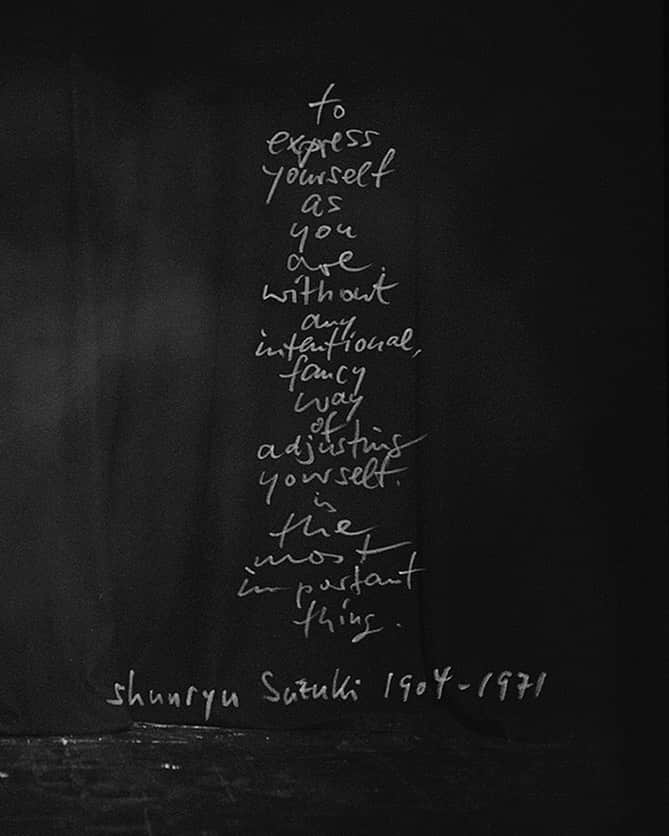 to
express
yourself
as
you
are.
without
any
intentional,
fancy
way
of
adjusting
yourself.
is
the
most
important
thing.
shunryu Suzuki 1904-1971